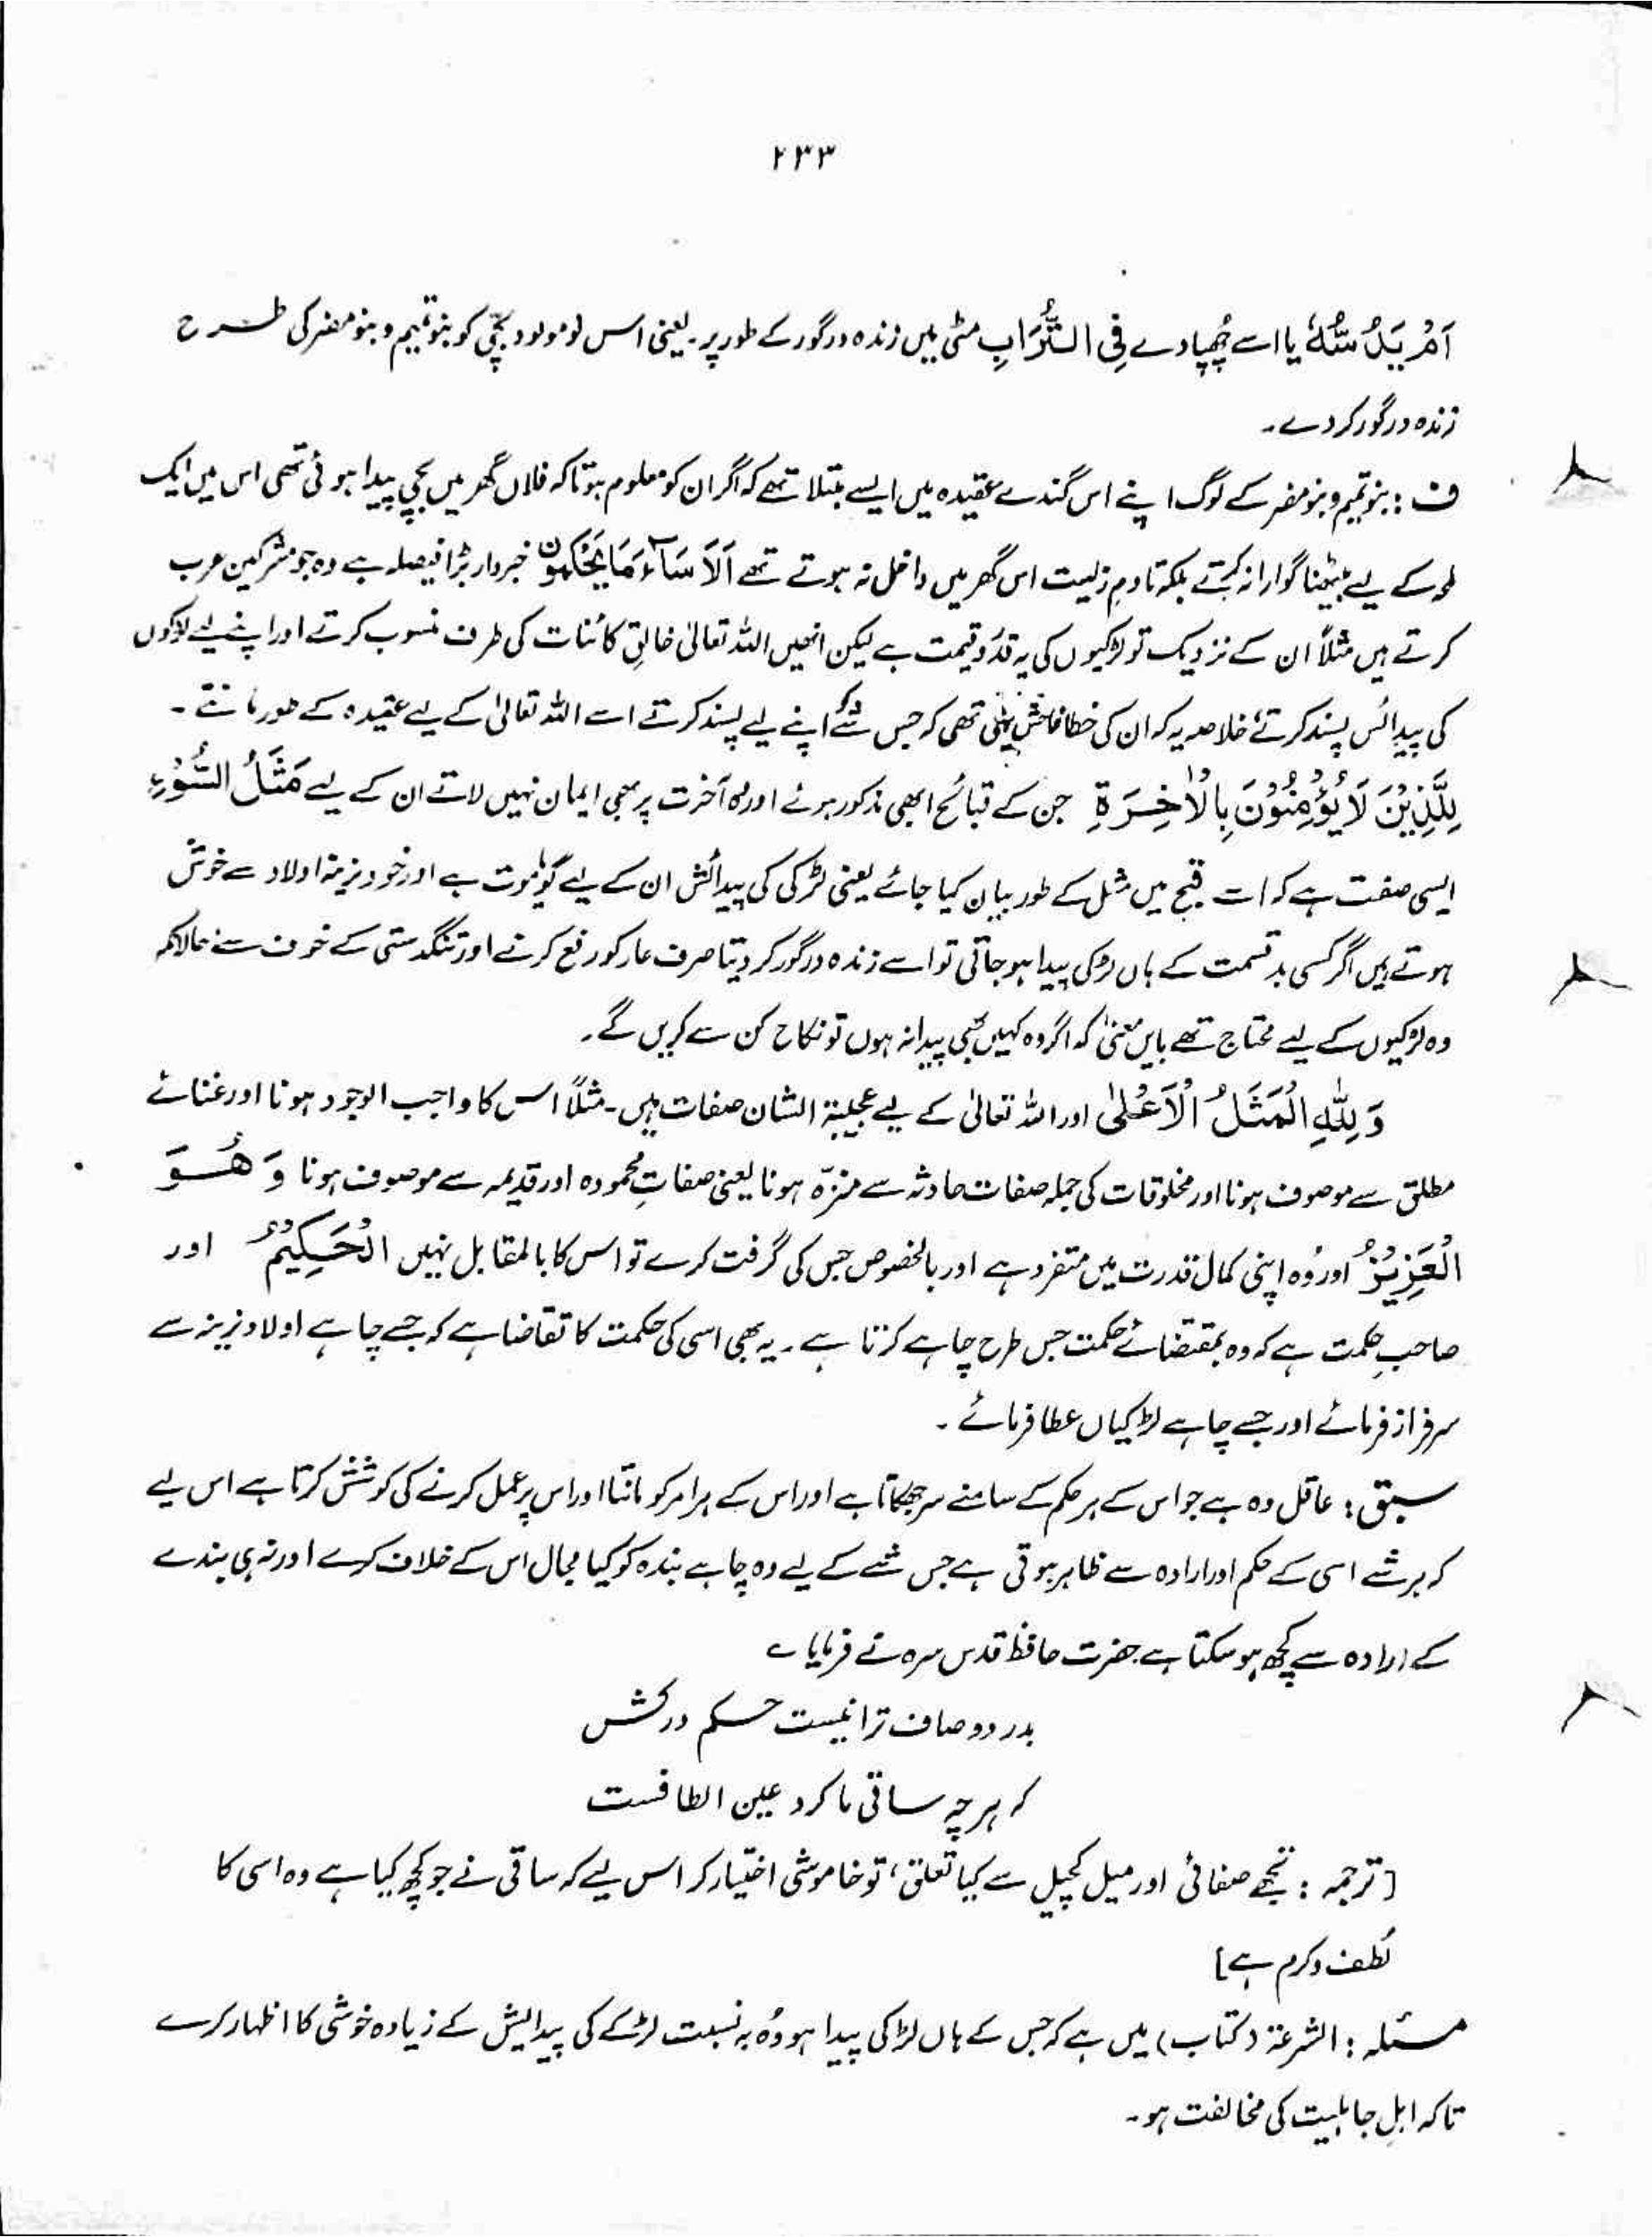 ۲۳۳
اَمْ يَدُسُّهٗ یا اسے چُھپا دے فِی التُّرَابِ مٹی میں زندہ درگور کے طور پر۔ یعنی اس نومولود بچّی کو بنوتمیم و بنو مضر کی طرح
زندہ درگور کر دے۔
ف : بنو تمیم و بنو مضر کے لوگ اپنے اس گندے عقیدہ میں ایسے مبتلا تھے کہ اگر ان کو معلوم ہوتا کہ فلاں گھر میں بچی پیدا ہوئی تھی اس میں ایک
لمحہ کے لیے بیٹھنا گوارا نہ کرتے بلکہ تا دمِ زیست اس گھر میں داخل نہ ہوتے تھے اَلَا سَآءَ مَا یَحْکُمُوْنَ خبردار بُرا فیصلہ ہے وہ جو مشرکین عرب
کرتے ہیں مثلاً ان کے نزدیک تو لڑکیوں کی یہ قدر و قیمت ہے لیکن انھیں اللہ تعالیٰ خالقِ کائنات کی طرف منسوب کرتے اور اپنے لیے لڑکوں
کی پیدائش پسند کرتے خلاصہ یہ کہ ان کی خطا فاحش تھی کہ جس شے کو اپنے لیے پسند کرتے اسے اللہ تعالیٰ کے لیے عقیدہ کے طور مانتے۔
لِلَّذِیْنَ لَا یُؤْمِنُوْنَ بِالْاٰخِرَۃِ جن کے قبائح ابھی مذکور ہوئے اور وہ آخرت پر بھی ایمان نہیں لاتے ان کے لیے مَثَلُ السَّوْءِ
ایسی صفت ہے کہ اسے قبح میں مثل کے طور بیان کیا جائے یعنی لڑکی کی پیدائش ان کے لیے گویا موت ہے اور خود نرینہ اولاد سے خوش
ہوتے ہیں اگر کسی بدقسمت کے ہاں لڑکی پیدا ہو جاتی تو اسے زندہ درگور کر دیتا صرف عار کو رفع کرنے اور تنگدستی کے خوف سے حالانکہ
وہ لڑکیوں کے لیے محتاج تھے بایں معنیٰ کہ اگر وہ کہیں بھی پیدا نہ ہوں تو نکاح کن سے کریں گے۔
وَ لِلّٰہِ الْمَثَلُ الْاَعْلٰی اور اللہ تعالیٰ کے لیے عجیبۃ الشان صفات ہیں۔ مثلاً اس کا واجب الوجود ہونا اور غنائے
مطلق سے موصوف ہونا اور مخلوقات کی جملہ صفات حادثہ سے منزّہ ہونا یعنی صفاتِ محمودہ اور قدیمہ سے موصوف ہونا وَ ھُوَ
الْعَزِیْزُ اور وُہ اپنی کمال قدرت میں متفرد ہے اور بالخصوص جس کی گرفت کرے تو اس کا بالمقابل نہیں الْحَکِیْمُ اور
صاحبِ حکمت ہے کہ وہ بمقتضائے حکمت جس طرح چاہے کرتا ہے۔ یہ بھی اسی کی حکمت کا تقاضا ہے کہ جسے چاہے اولاد نرینہ سے
سرفراز فرمائے اور جسے چاہے لڑکیاں عطا فرمائے۔
سبق : عاقل وہ ہے جو اس کے ہر حکم کے سامنے سر جھکاتا ہے اور اس کے ہر امر کو مانتا اور اس پر عمل کرنے کی کوشش کرتا ہے اس لیے
کہ ہر شے اسی کے حکم اور ارادہ سے ظاہر ہوتی ہے جس شے کے لیے وہ چاہے بندہ کو کیا مجال اس کے خلاف کرے اور نہ ہی بندے
کے ارادہ سے کچھ ہو سکتا ہے حضرت حافظ قدس سرہ نے فرمایا ؎
بدرد و صاف ترا نیست حکم درکش
کہ ہر چہ ساقی ما کرد عین الطافست
[ ترجمہ : تجھے صفائی اور میل کچیل سے کیا تعلق، تو خاموشی اختیار کر اس لیے کہ ساقی نے جو کچھ کیا ہے وہ اسی کا
لُطف و کرم ہے ]
مسئلہ : الشرعۃ (کتاب) میں ہے کہ جس کے ہاں لڑکی پیدا ہو وُہ بہ نسبت لڑکے کی پیدایش کے زیادہ خوشی کا اظہار کرے
تاکہ اہلِ جاہلیت کی مخالفت ہو۔